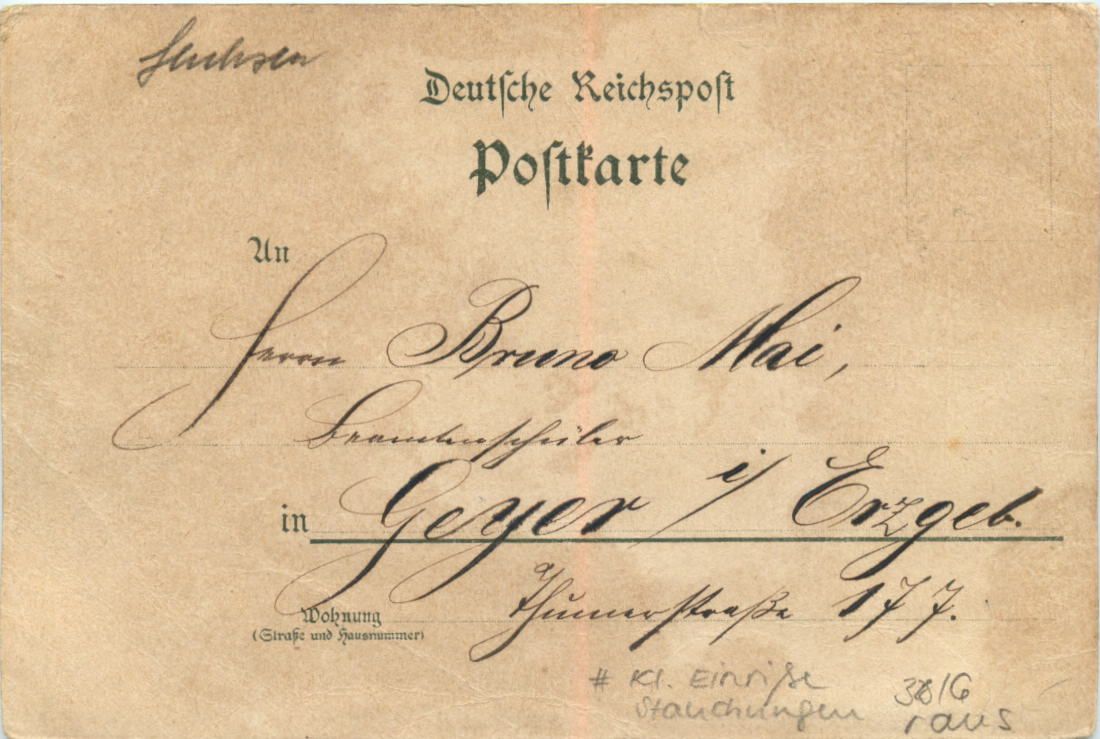 Sachsen
Deutsche Reichspost
Postkarte
An
Herrn Bruno Mai,
Beamtenschüler
in Geyer i/ Erzgeb.
Thumerstraße 177.
Wohnung
(Straße und Hausnummer)
# Kl. Einriße
Stauchungen
raus